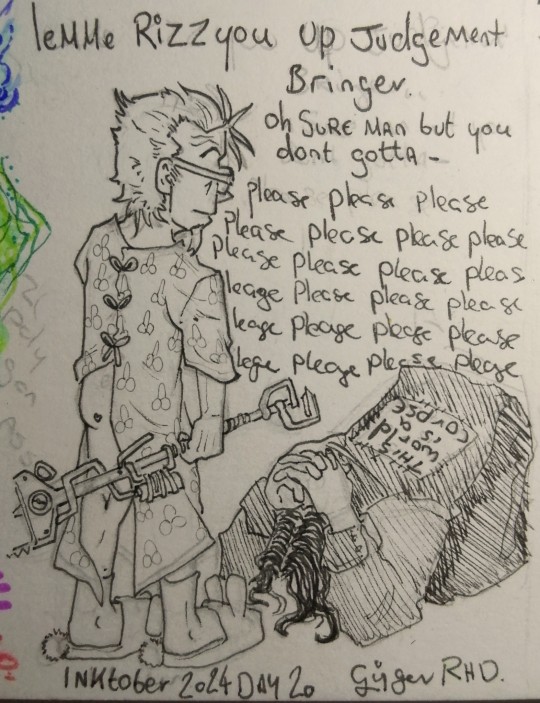 leMMe RizzYou Up Judgement
Bringer.
Oh SURE MAN but you
dont gotta-
Please please please
Please please please please
please Please please pleas
leage Please please please
lease Please please Please
lege please Please Please
THIS
WORLD
IS A
CORPSE
INKtober 2024 DAY 20